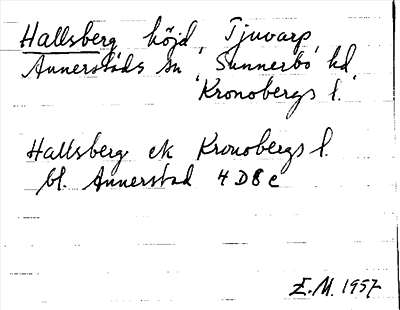 Hallsberg höjd, Tjuvarp
Annerstads sn, Sunnerbo hd,
Kronobergs l.
Hallsberg ek Kronobergs l.
bl. Annerstad 4 D 8 c
E.M. 1957